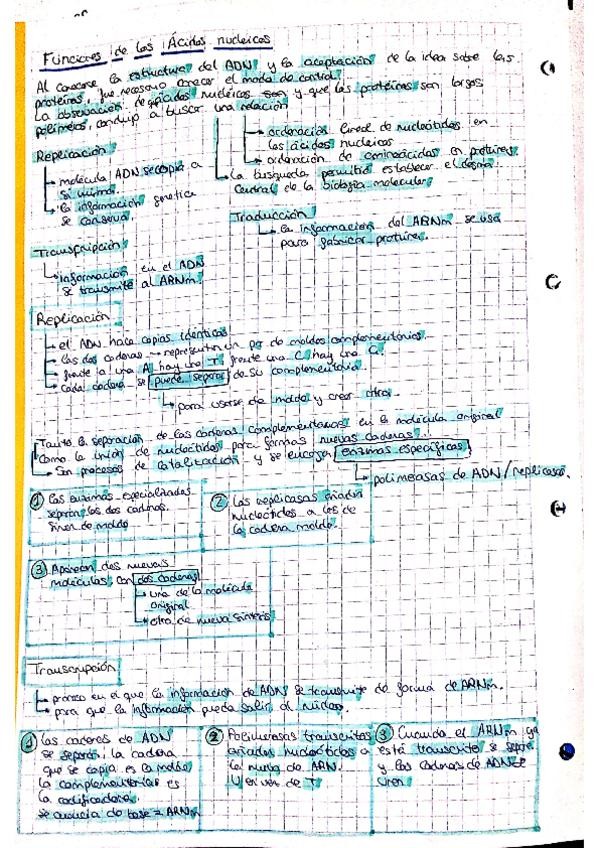 Funciones de los Ácidos nucleicos
Al conocerse la estructura del ADN y la aceptación de la idea sobre las
proteínas, fue necesario conocer el modo de control.
La observación de ácidos nucleicos son y que las proteínas son largos
polímeros, condujo a buscar una relación
ordenación lineal de nucleótidos en
los ácidos nucleicos
ordenación de aminoácidos en proteínas.
La búsqueda permitió establecer el dogma
central de la biología molecular
Replicación
molécula ADN se copia a
sí misma.
la información genética
se conserva
Traducción
la información del ARNm se usa
para fabricar proteínas
Transcripción
información en el ADN
se transmite al ARNm.
Replicación
el ADN hace copias idénticas
las dos cadenas → representan un par de moldes complementarios.
frente a una A hay una T, frente una C hay una G.
Cada cadena se puede separar de su complementaria
para usarse de molde y crear otra.
Tanto la separación de las cadenas complementarias en la molécula original
como la unión de nucleótidos para formar nuevas cadenas...
Son procesos de catalización y se encarga enzimas específicas
polimerasas de ADN/replicasas.
① Las enzimas especializadas
separan las dos cadenas.
Sirven de molde
② Las replicasas añaden
nucleótidos a los de
la cadena molde.
③ Aparecen dos nuevas
moléculas, con dos cadenas
una de la molécula
original
otra de nueva síntesis
Transcripción
proceso en el que la información de ADN se transmite de forma de ARNm.
para que la información pueda salir del núcleo.
① Las cadenas de ADN
se separan; la cadena
que se copia es la molde
la complementaria es
la codificadora.
secuencia de base = ARNm
② Polimerasas transcritas
añaden nucleótidos a
la nueva de ARN.
U en vez de T
③ Cuando el ARNm ya
está transcrito se separa
y las cadenas de ADN se
unen.